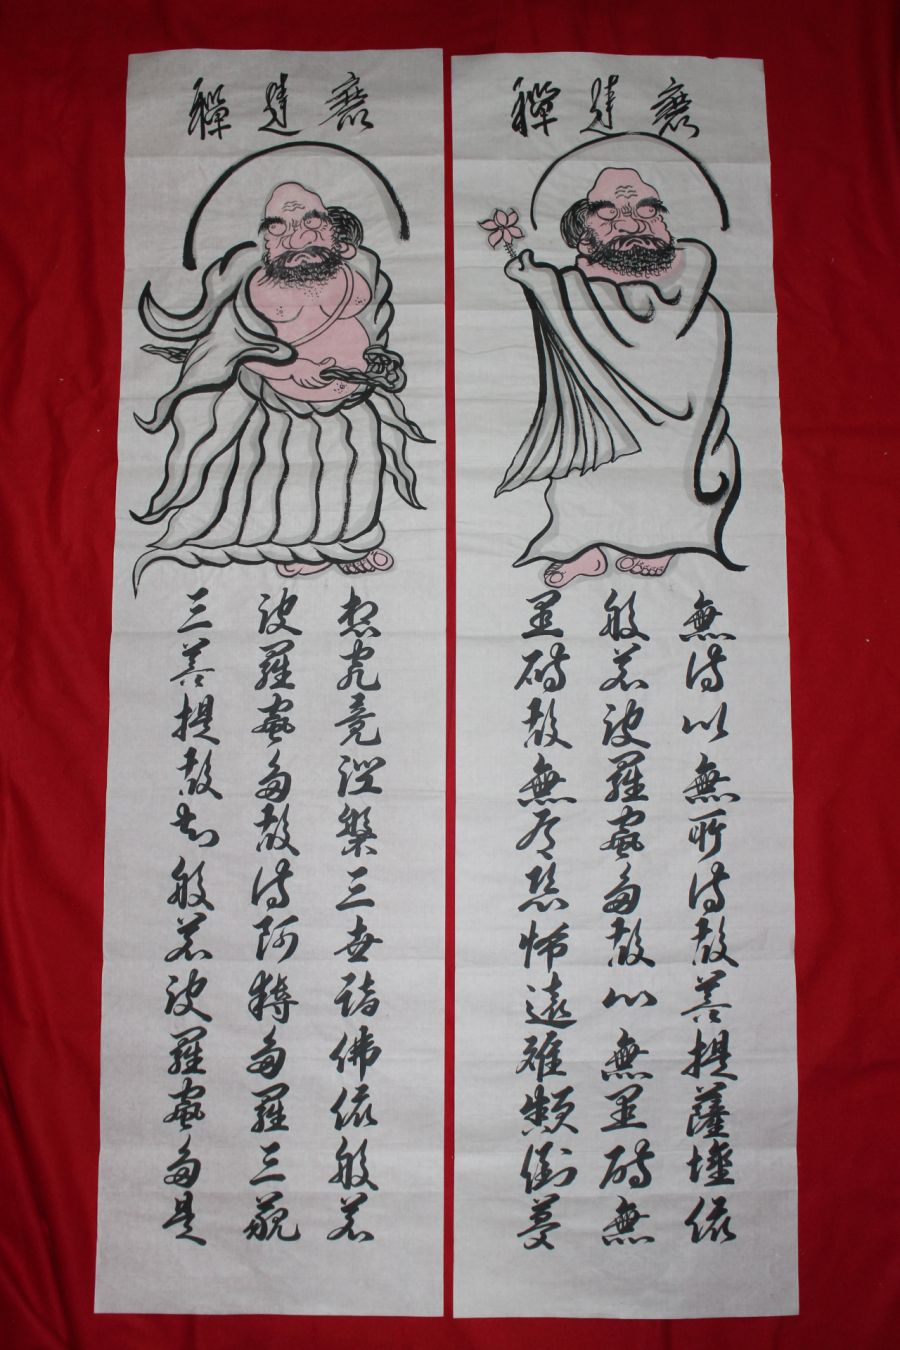 禪達磨
無得以無所得故菩提薩埵依
般若波羅蜜多故心無罣礙無
罣礙故無有恐怖遠離顛倒夢
禪達磨
想究竟涅槃三世諸佛依般若
波羅蜜多故得阿耨多羅三藐
三菩提故知般若波羅蜜多是